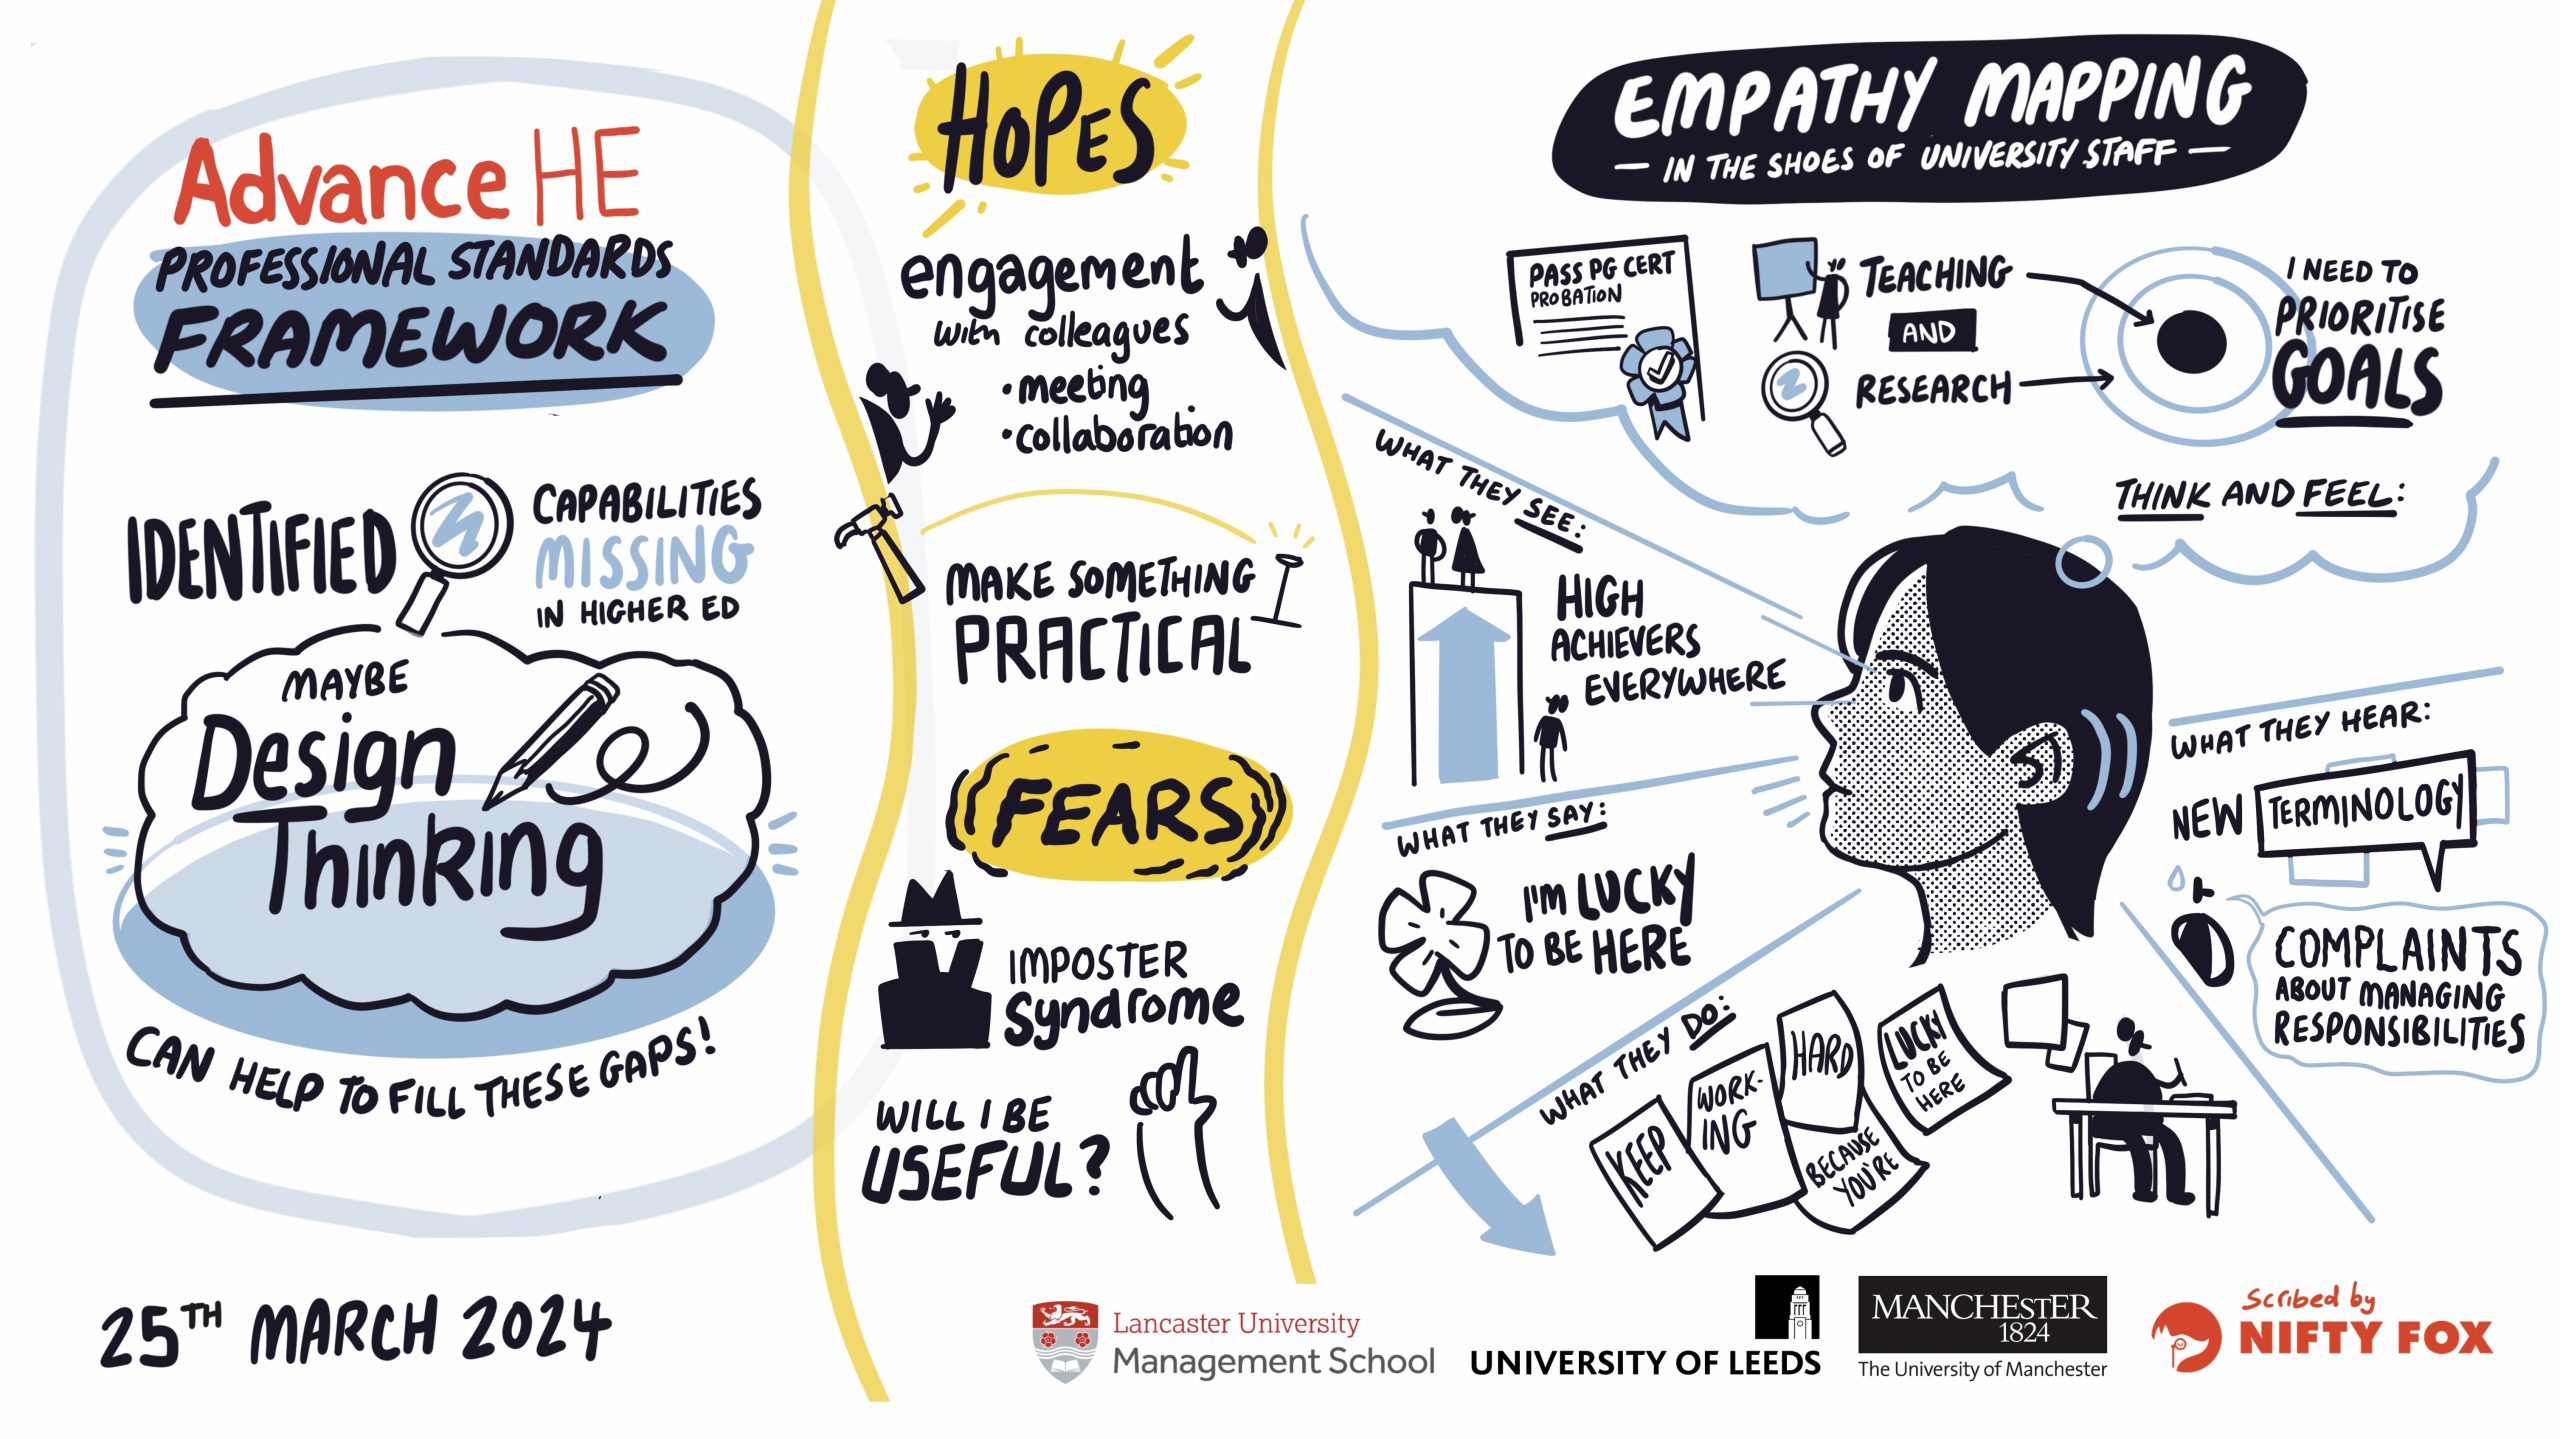 Advance HE
PROFESSIONAL STANDARDS
FRAMEWORK
IDENTIFIED
CAPABILITIES
MISSING
IN HIGHER ED
MAYBE
Design
Thinking
CAN HELP TO FILL THESE GAPS!
25TH MARCH 2024
HOPES
engagement
with colleagues
•meeting
•collaboration
MAKE SOMETHING
PRACTICAL
FEARS
IMPOSTER
Syndrome
WILL I BE
USEFUL?
EMPATHY MAPPING
— IN THE SHOES OF UNIVERSITY STAFF —
PASS PG CERT
PROBATION
TEACHING
AND
RESEARCH
I NEED TO
PRIORITISE
GOALS
THINK AND FEEL:
WHAT THEY SEE:
HIGH
ACHIEVERS
EVERYWHERE
WHAT THEY SAY:
I'M LUCKY
TO BE HERE
WHAT THEY HEAR:
NEW TERMINOLOGY
COMPLAINTS
ABOUT MANAGING
RESPONSIBILITIES
WHAT THEY DO:
KEEP
WORK-
ING
HARD
BECAUSE
YOU'RE
LUCKY
TO BE
HERE
Lancaster University
Management School
UNIVERSITY OF LEEDS
MANCHESTER
1824
The University of Manchester
Scribed by
NIFTY FOX